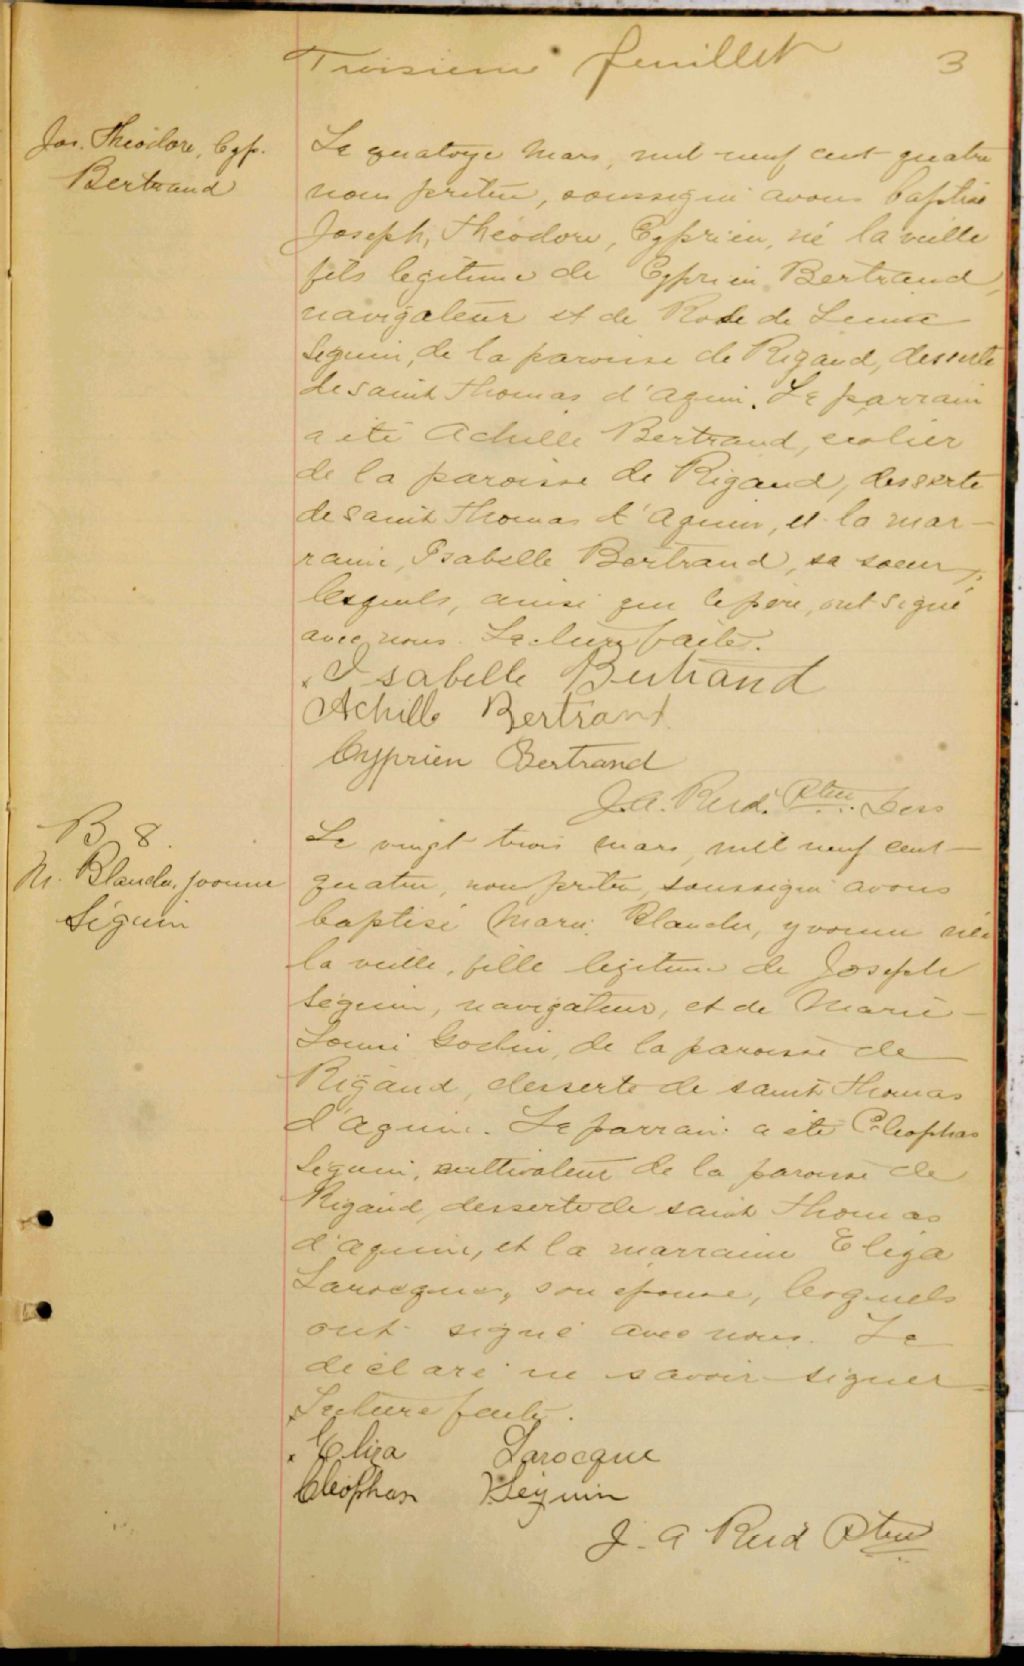 Troisieme feuillet 3
Jos. Théodore, Cyp.
Bertrand
Le quatorze Mars, mil neuf cent quatre
nous prêtre, soussigné avons baptisé
Joseph, Théodore, Cyprien, né la veille
fils legitime de Cyprien Bertrand,
navigateur et de Rose de Lima
Seguin, de la paroisse de Rigaud, desserte
de saint Thomas d'Aquin. Le parrain
a été Achille Bertrand, ecolier
de la paroisse de Rigaud, desserte
de saint Thomas d'Aquin, et la mar-
raine, Isabelle Bertrand, sa soeur,
lesquels, ainsi que le père, ont signé
avec nous. Lecture faite.
Isabelle Bertrand
Achille Bertrand
Cyprien Bertrand
J.A. Reid. Ptre. Dess
B 8.
M. Blanche, Yvonne
Séguin
Le vingt trois mars, mil neuf cent
quatre, nous prêtre, soussigné avons
baptisé Marie, Blanche, Yvonne née
la veille, fille legitime de Joseph
Séguin, navigateur, et de Marie-
Louise Godin, de la paroisse de
Rigaud, desserte de saint Thomas
d'Aquin. Le parrain a été Cléophas
Seguin, cultivateur de la paroisse de
Rigaud, desserte de saint Thomas
d'aquin, et la marraine Eliza
Larocque, son épouse, lesquels
ont signé avec nous. Le
déclaré ne savoir signer
Lecture faite.
Eliza Larocque
Cléophas Séguin
J. A Reid Ptre